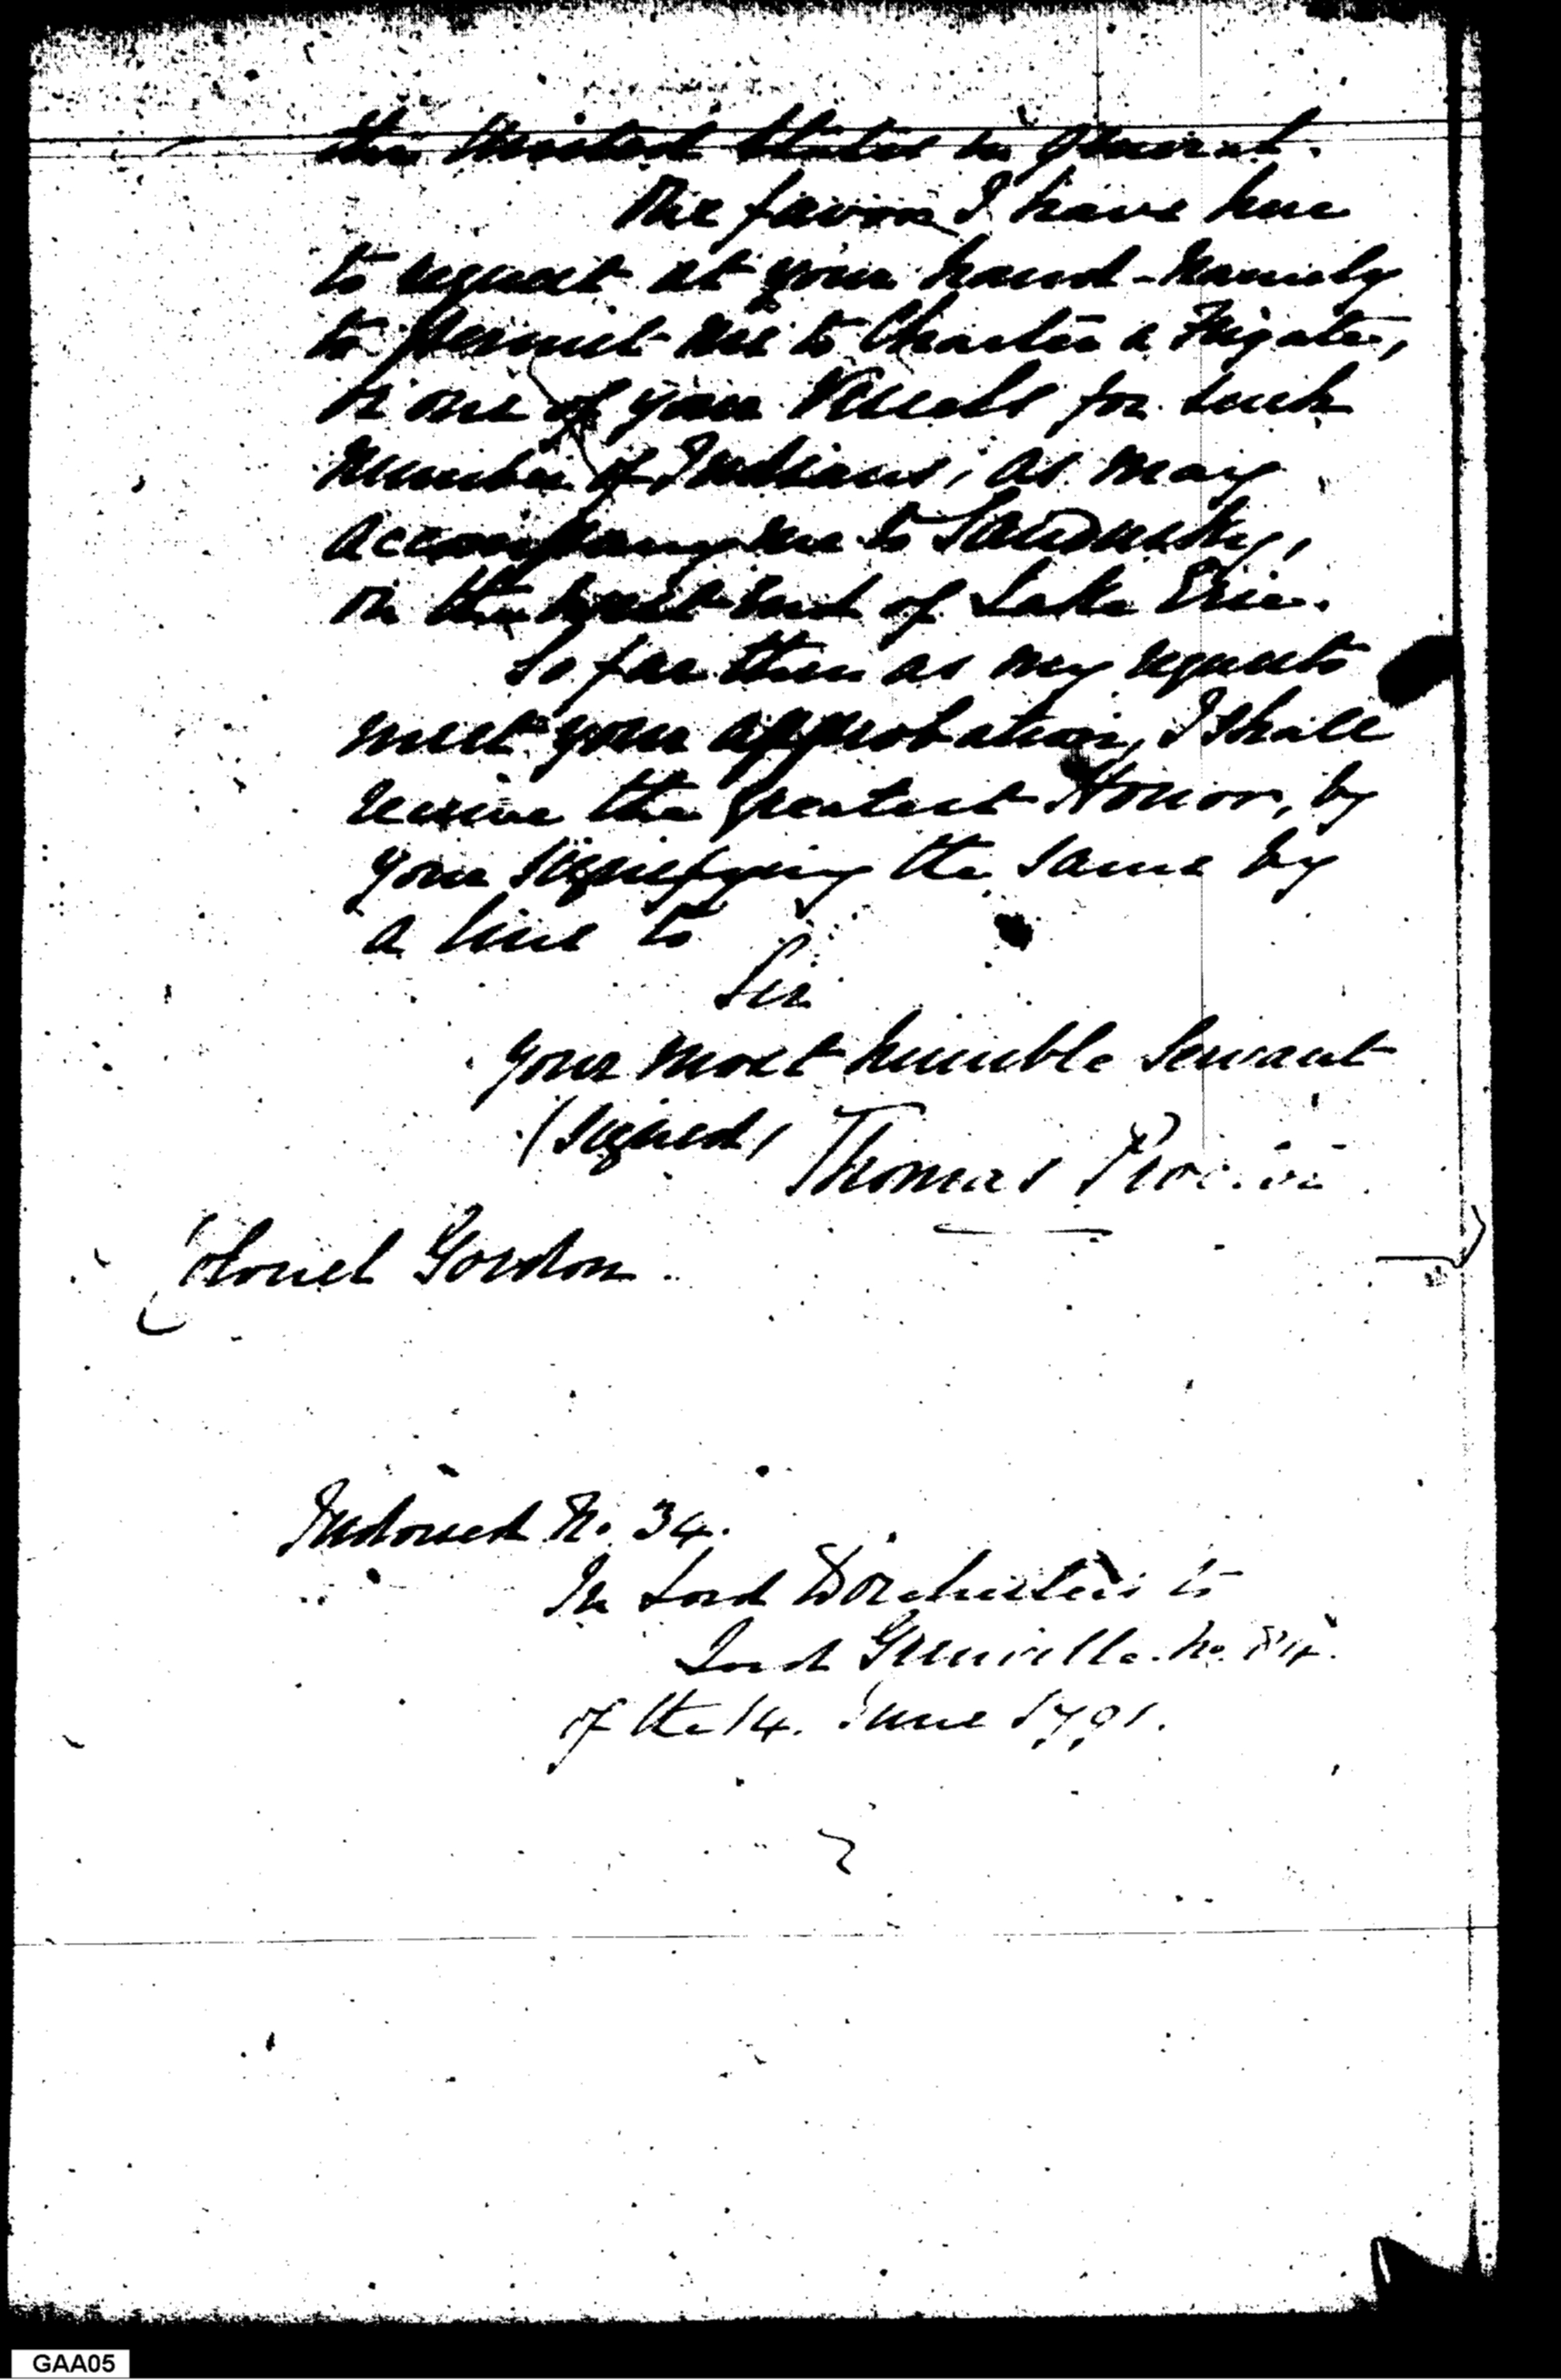 the United States in general.
The favor I have here
to request at your hand - namely
to permit me to Charter a Frigate,
in one of your Vessels for such
number of Indians, as may
accompany me to Sandusky,
on the West end of Lake Erie.
So far then as my requests
meet your approbation, I shall
receive the greatest Honor, by
your signifying the same by
a line to
Sir
your most humble Servant
(signed) Thomas
Colonel Gordon.
Indorsed No. 34.
In Lord Dorchester's to
Lord Grenville. No.
of the 14. June 1791.
GAA05